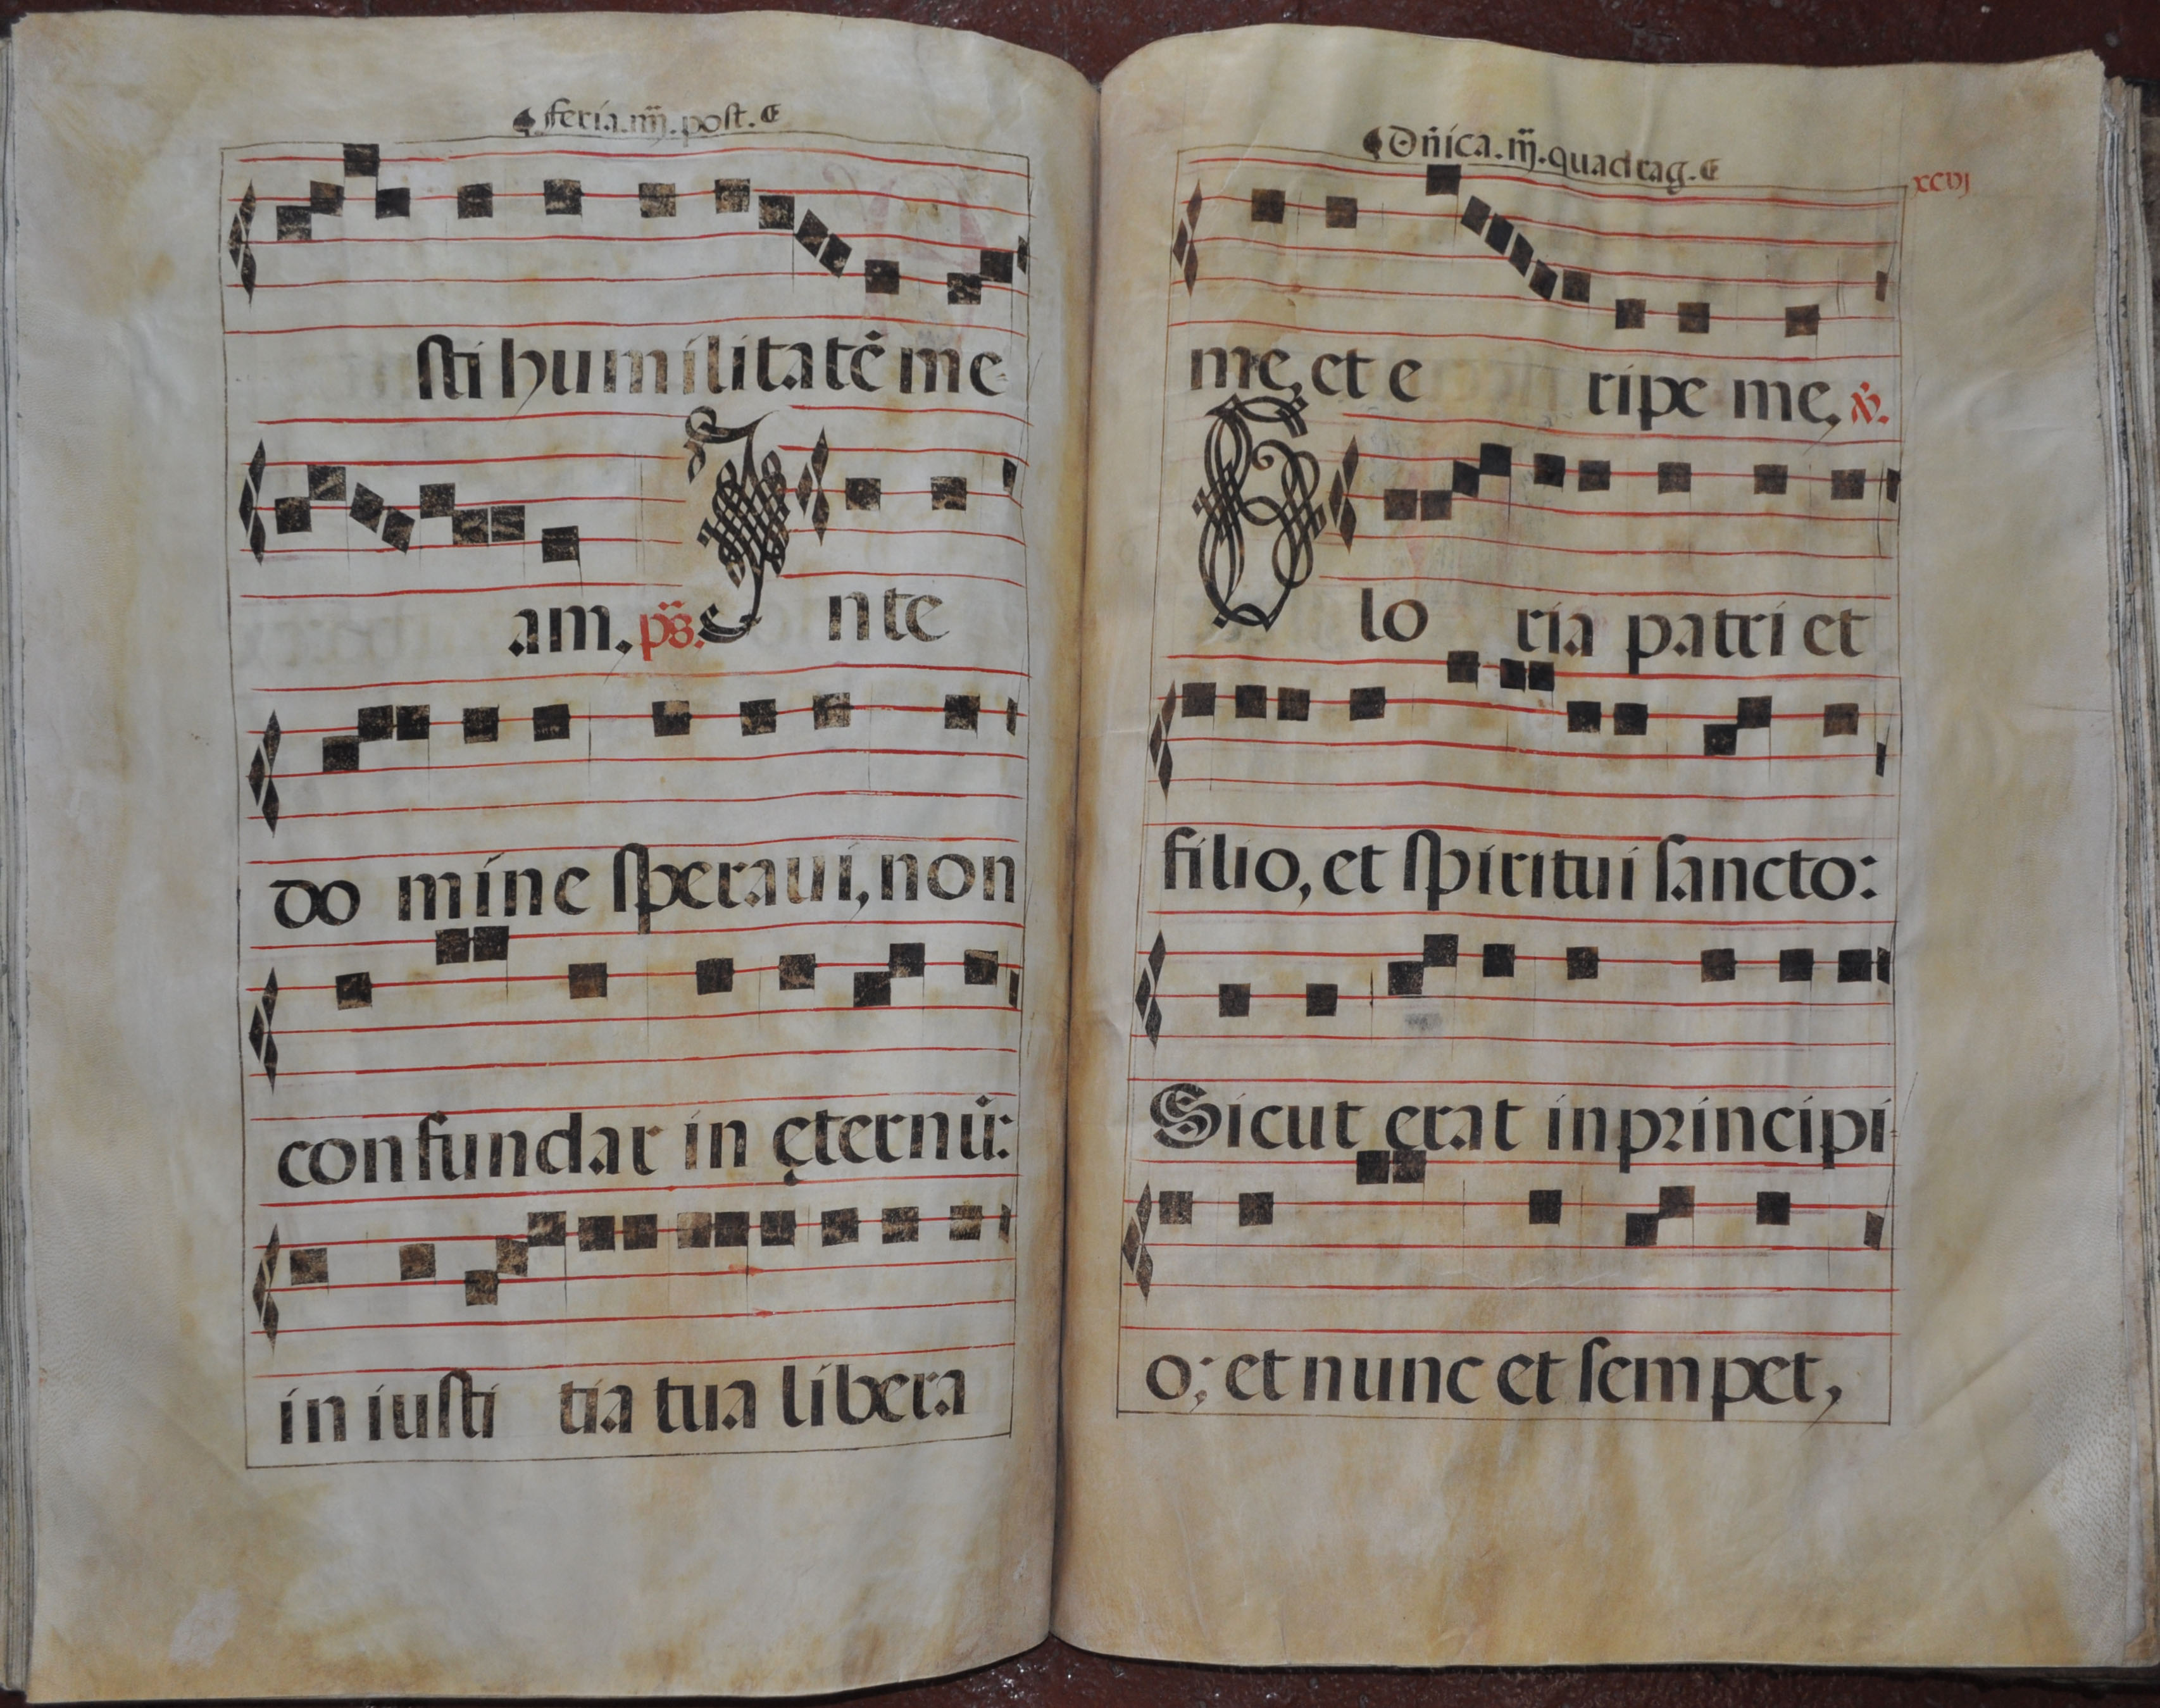 feria.iiij.post.
sti humilitatē me
am. ps. Inte
do mine speraui, non
confundar in ęternū:
in iusti tia tua libera
Dn̄ica.iij.quadrag.
xcvj
me, et e ripe me, ℣.
Glo ria patri et
filio, et spiritui sancto:
Sicut erat in principi-
o; et nunc et semper,